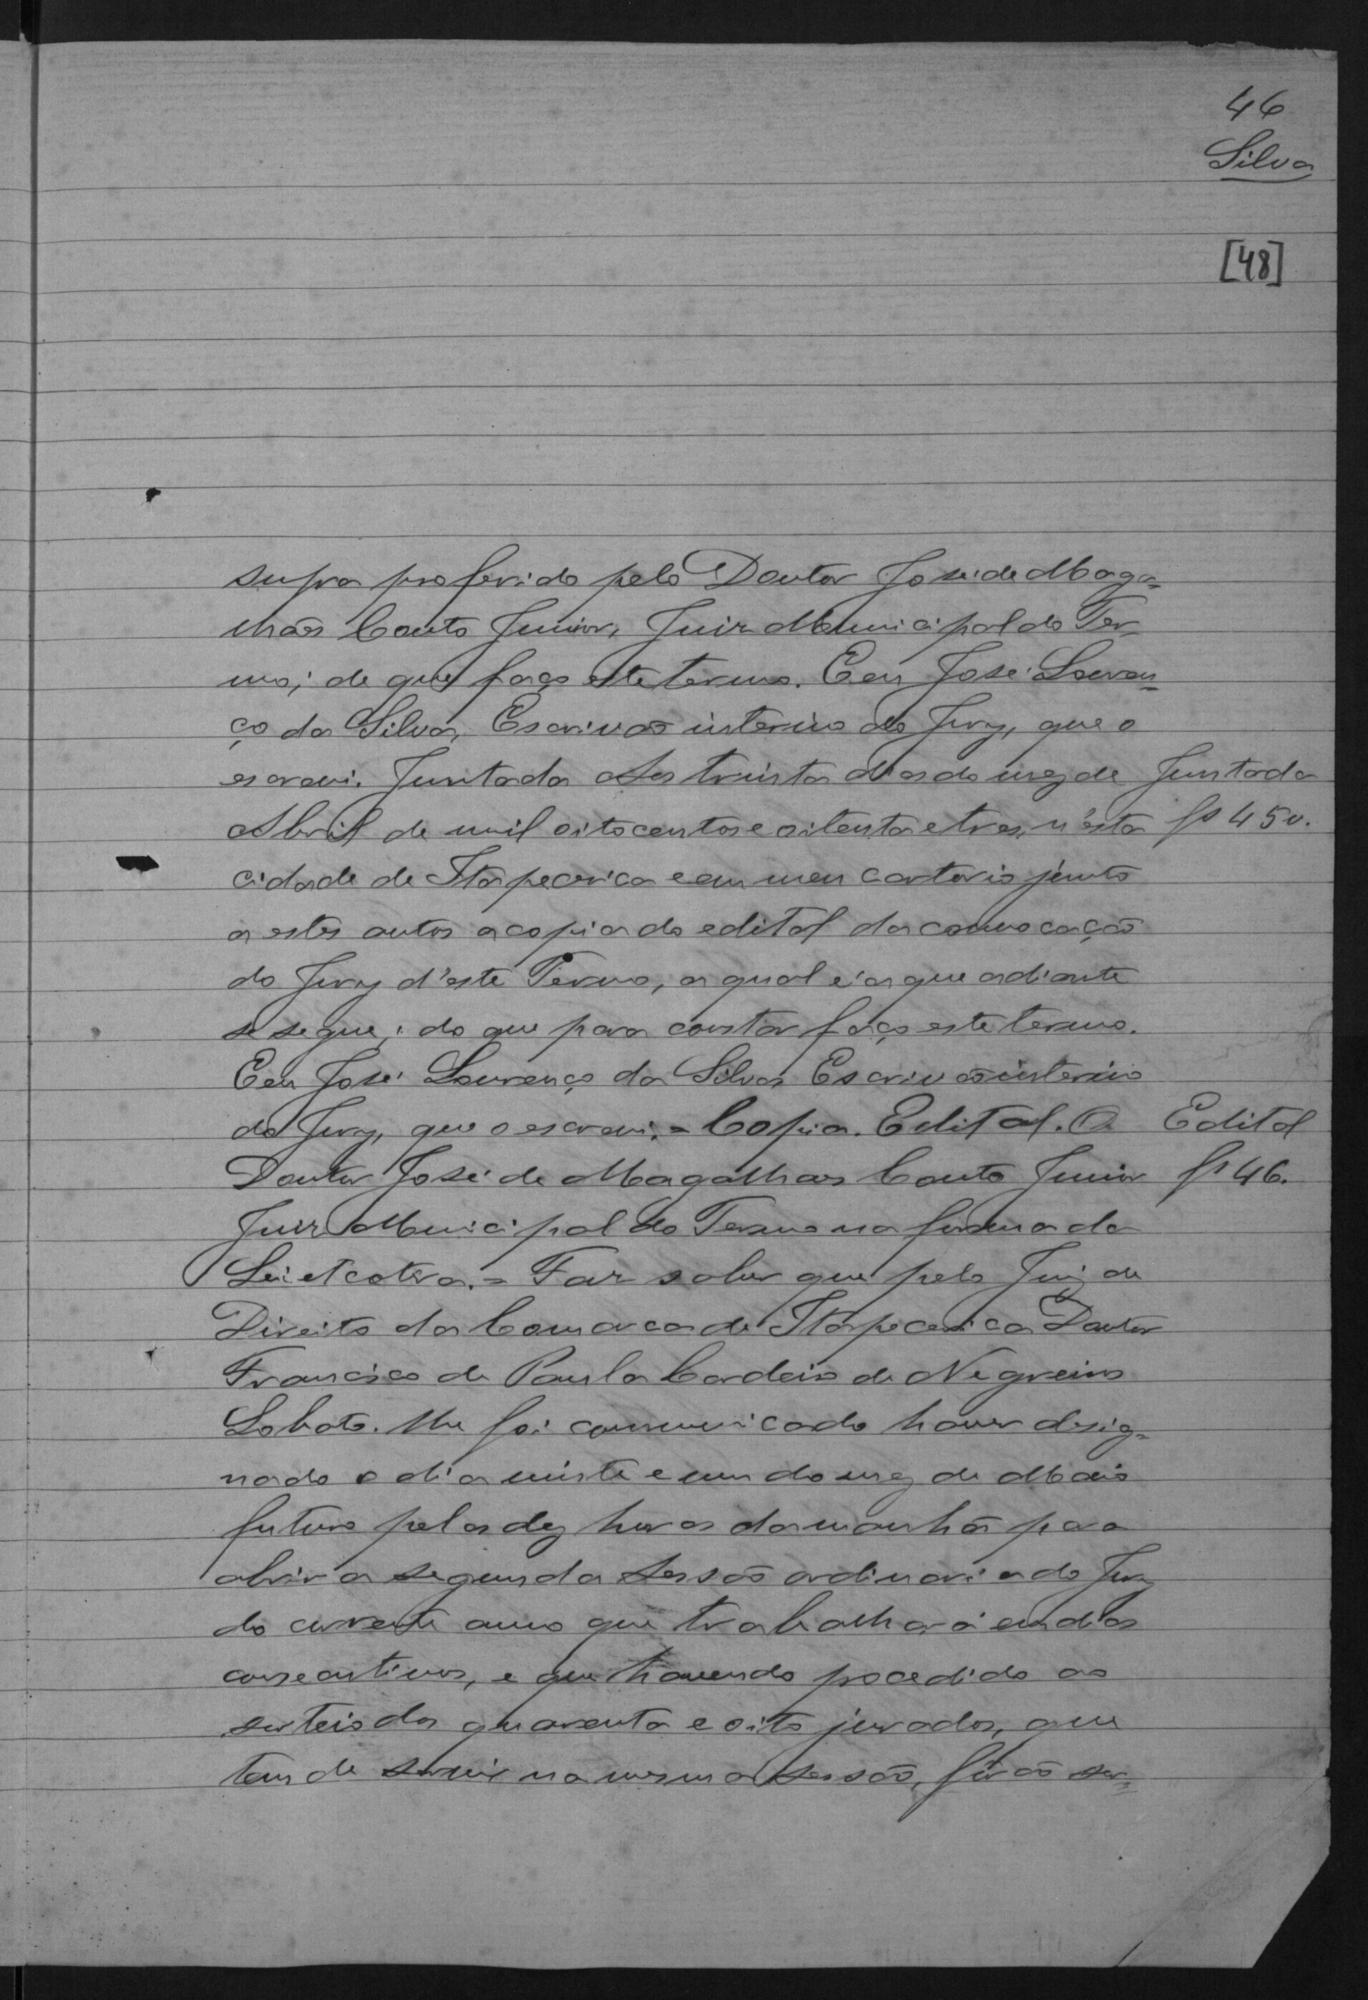 46
Silva
[48]
supra proferido pelo Doutor José de Maga-
lhães Couto Junior, Juiz Municipal do Ter-
mo; de que faço este termo. Eeu José Louren-
ço da Silva, Escrivão interino do Jury, que o
escrevi. Juntada Aos trinta dias do mez de Juntada
Abril de mil oitocentos e oitenta e tres, n'esta fs 45v.
cidade de Itapecerica e em meu cartorio junto
a estes autos a copia do edital da convocação
do Jury d'este Termo, a qual é a que adiante
se segue; do que para constar faço este termo.
Eeu José Lourenço da Silva Escrivão interino
do Jury, que o escrevi. = Copia. Edital. O Edital
Doutor José de Magalhães Couto Junior fs 46.
Juiz Municipal do Termo na forma da
Lei etcetera. = Faz saber que pelo Juiz de
Direito da Comarca de Itapecerica Doutor
Francisco de Paula Cordeiro de Negreiros
Lobato. lhe foi communicado haver desig-
nado o dia vinte e um do mez de Maio
futuro pelas dez horas da manhã para
abrir a segunda sessão ordinaria do Jury
do corrente anno que trabalhará em dias
consecutivos, e que havendo procedido ao
sorteio dos quarenta e oito jurados, que
tem de servir na mesma sessão, forão sor-